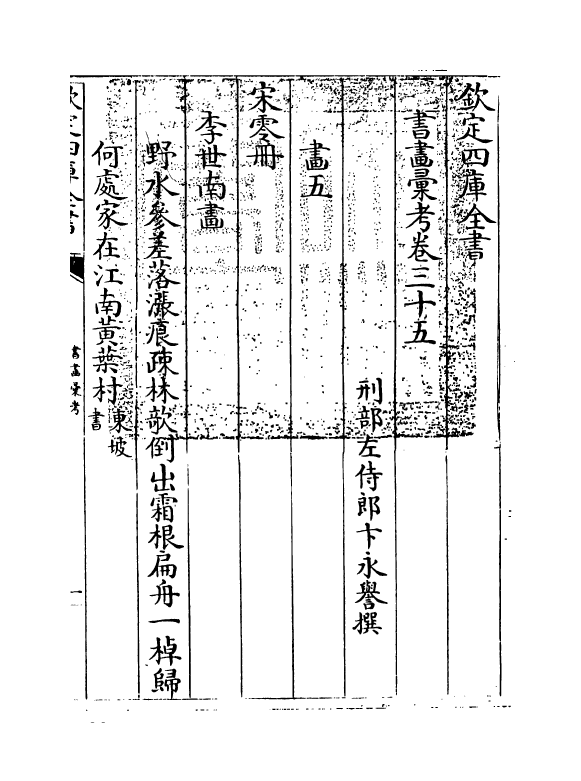 欽定四庫全書
書畫彚考卷三十五
刑部左侍郎卞永譽撰
畫五
宋零冊
李世南畫
野水參差落漲痕疎林欹倒出霜根扁舟一棹歸
何處家在江南黃葉村東坡書
欽定四庫全書
書畫彚考
一